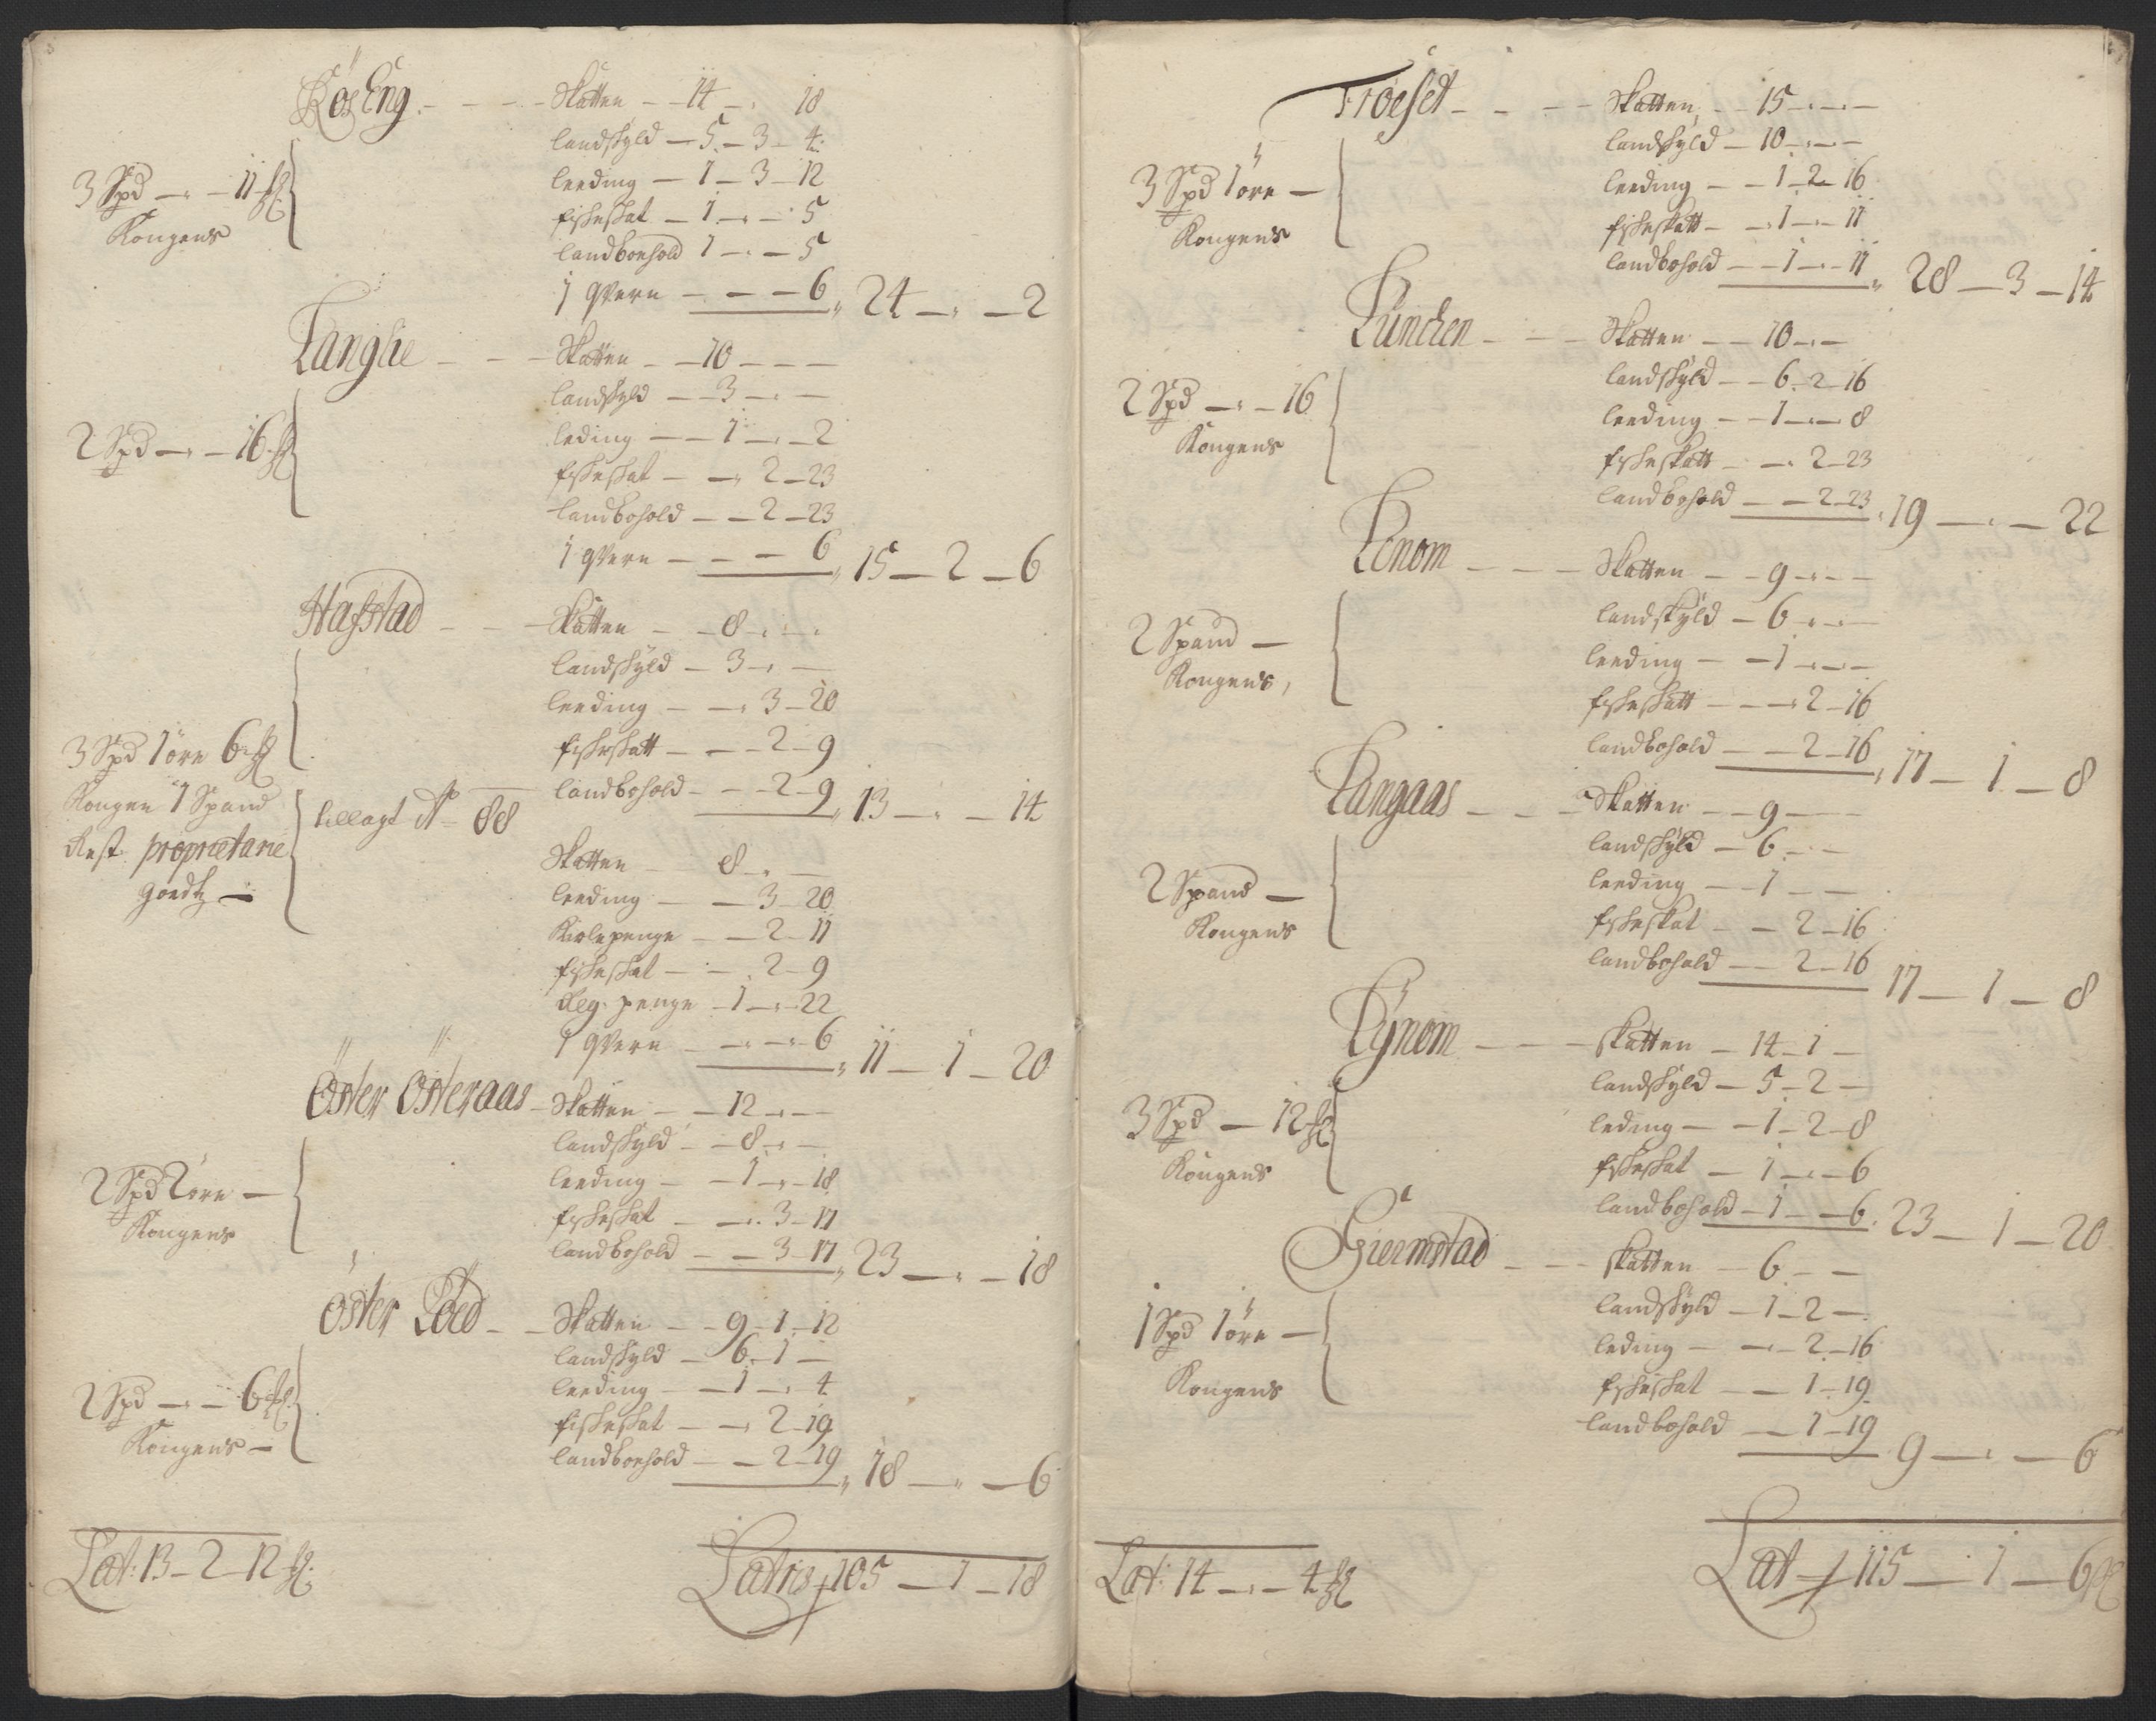 Røs Eng - - - Skatten - 14 - 18
landskyld - 5 - 3 - 4
3 Spd - - 11 sk: leeding - 1 - 3 - 12
Kongens fiskeskat - 1 - - 5
landboehold 1 - - 5
1 qvern - - - 6 24 - - 2
Langlie - - - Skatten - 10 - - -
landskyld - 3 - -
2 Spd - - 16 sk leding - 1 - - 2
fiskeskat - - 2 - 23
landbohold - - 2 - 23
1 qvern - - - 6 15 - 2 - 6
Hafstad - - - Skatten - - 8 - -
landskyld - 3 - -
leeding - - 3 - 20
3 Spd 1 øre 6 sk fiskeskatt - - 2 - 9
Kongen 1 Spand landbohold - - 2 - 9 13 - - 14
tillagt Ao 88
Rest proprietarie Skatten - 8 - -
goedtz - leeding - - 3 - 20
Kirlepenge - - 2 - 11
fiskeskat - - 2 - 9
Leg: penge - 1 - - 22
1 qvern - - - 6 11 - 1 - 20
Öster Österaas - Skatten - - 12 - -
landskyld - - 8 - -
2 Spd 2 øre - leeding - - 1 - - 18
Kongens fiskeskat - - 3 - 17
landbohold - - 3 - 17 23 - - 18
öster Löed - - Skatten - - 9 - 1 - 12
landskyld - 6 - 1 -
2 Spd - - 6 sk leeding - - 1 - - 4
Kongens - fiskeskat - - 2 - 19
landboehold - - 2 - 19 18 - - 6
Lat: 13 - 2 - 12 sk: Latris 105 - 1 - 18
Froeset - - - Skatten, - 15 - - -
landskyld - 10 - - -
3 Spd 1 øre - leeding - - 1 - 2 - 16
Kongens fiskeskatt - - 1 - - 11
landbohold - - 1 - - 11 28 - 3 - 14
Lünchen - - - Skatten - - 10 - -
landskyld - - 6 - 2 - 16
2 Spd - - 16 leeding - - 1 - - 8
Kongens fiskeskatt - - 2 - 23
landbohold - - 2 - 23 19 - - 22
Lenom - - - Skatten - - 9 - - -
landskyld - 6 - - -
2 Spand - leeding - - 1 - - -
Kongens, fiskeskatt - - - 2 - 16
landbohold - - 2 - 16 17 - 1 - 8
Langaas - - - Skatten - - 9 - -
landskyld - 6 - -
2 Spand - leeding - - 1 - -
Kongens fiskeskat - - 2 - 16
landbohold - - 2 - 16 17 - 1 - 8
Lÿnom - - - skatten - 14 - 1 -
landskyld - 5 - 2 -
3 Spd - 12 sk leding - - 1 - 2 - 8
Kongens fiskeskat - 1 - - 6
landbohold - 1 - - 6 23 - 1 - 20
Giermstad - - - skatten - 6 - -
landskyld - 1 - 2 -
1 Spd 1 öre - leding - - 2 - 16
Kongens fiskeskat - - 1 - 19
landbohold - - 1 - 19 9 - - 6
Lat: 14 - - 4 sk Lat 115 - 1 - 6 sk